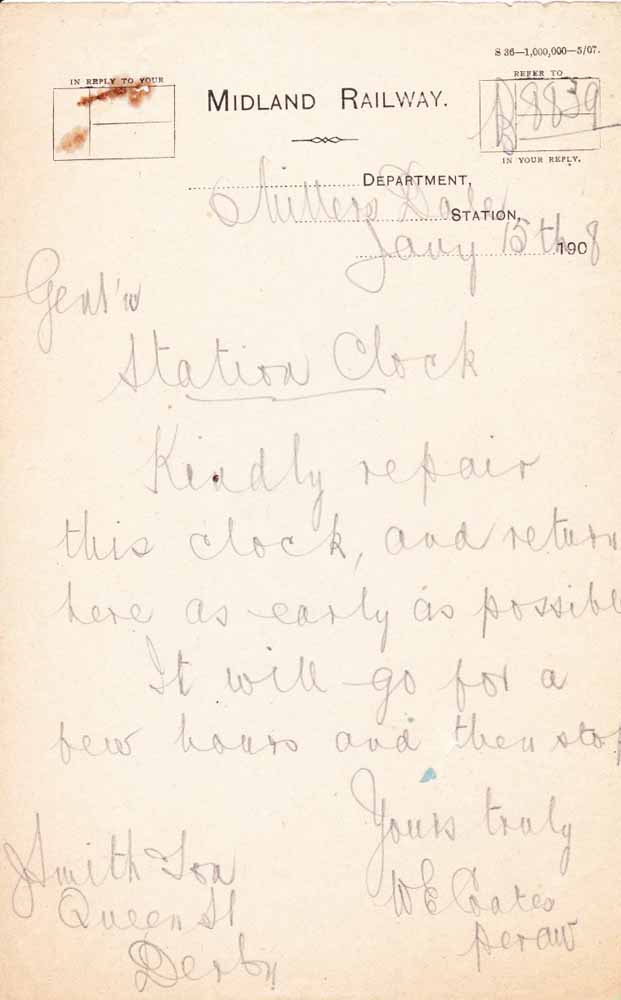 S 36—1,000,000—5/07.
IN REPLY TO YOUR
REFER TO
MIDLAND RAILWAY.
B 8839
IN YOUR REPLY.
DEPARTMENT,
Millers Dale STATION,
Jany 15th 1908
Gent'n
Station Clock
Kindly repair
this clock, and return
here as early as possible
It will go for a
few hours and then stop
Yours truly
J Smith & Son
W E Coates
Queen St
per aw
Derby